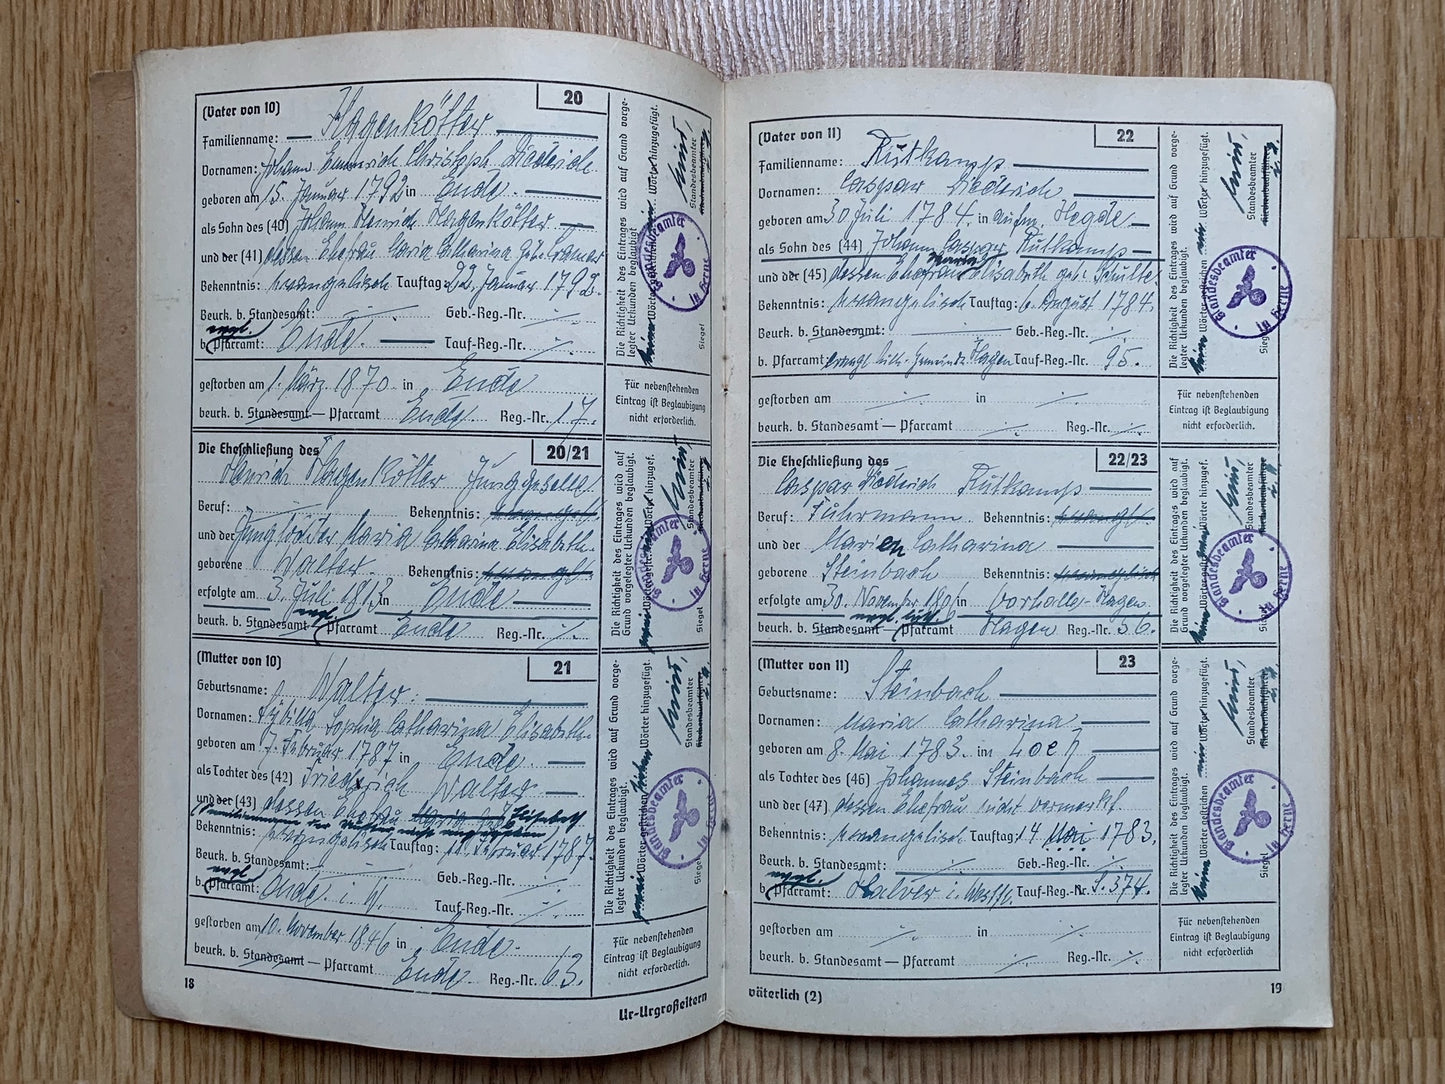 (Vater von 10) 20
Familienname: Hagenkötter
Vornamen: Johann Emmerich Christoph Diederich
geboren am 15. Januar 1792 in Ende.
als Sohn des (40) Johann Heinrich Hagenkötter
und der (41) dessen Ehefrau Maria Catharina geb. Cramer
Bekenntnis: evangelisch Tauftag: 22. Januar 1792.
Beurk. b. Standesamt: Geb.-Reg.-Nr.
evgl.
b. Pfarramt: Ende. Tauf-Reg.-Nr.
gestorben am 1. März 1870 in Ende
beurk. b. Standesamt — Pfarramt Ende Reg.-Nr. 17.
Die Richtigkeit des Eintrages wird auf Grund vorge-
legter Urkunden beglaubigt.
Wörter hinzugefügt.
Standesbeamter
Siegel
Standesbeamter
in Herne
Für nebenstehenden
Eintrag ist Beglaubigung
nicht erforderlich.
Die Eheschließung des 20/21
Heinrich Hagenkötter Junggeselle
Beruf: Bekenntnis:
und der Jungfrau Maria Catharina Elisabeth
geborene Walter. Bekenntnis:
erfolgte am 3. Juli 1813 in Ende
evgl.
beurk. b. Standesamt — Pfarramt Ende Reg.-Nr.
Die Richtigkeit des Eintrages wird auf
Grund vorgelegter Urkunden beglaubigt.
Standesbeamter
Siegel
Standesbeamter
in Herne
(Mutter von 10) 21
Geburtsname: Walter.
Vornamen: Sybilla Sophia Catharina Elisabeth
geboren am 7. Februar 1787 in Ende.
als Tochter des (42) Friedrich Walter
und der (43) dessen Ehefrau Elisabeth
Bekenntnis: evangelisch Tauftag: 11. Februar 1787.
Beurk. b. Standesamt: Geb.-Reg.-Nr.
evgl.
b. Pfarramt: Ende i. W. Tauf-Reg.-Nr.
gestorben am 10. November 1846 in Ende.
beurk. b. Standesamt — Pfarramt Ende Reg.-Nr. 63.
Die Richtigkeit des Eintrages wird auf Grund vorge-
legter Urkunden beglaubigt.
Wörter gestrichen sieben Wörter hinzugefügt.
Standesbeamter
Siegel
Standesbeamter
in Herne
Für nebenstehenden
Eintrag ist Beglaubigung
nicht erforderlich.
18
Ur-Urgroßeltern
(Vater von 11) 22
Familienname: Rutkamp
Vornamen: Caspar Diederich
geboren am 30 Juli 1784. in Hegde
als Sohn des (44) Johann Caspar Rutkamp
Maria
und der (45) dessen Ehefrau Elisabeth geb. Schulte.
Bekenntnis: evangelisch Tauftag: 6. August 1784.
Beurk. b. Standesamt: Geb.-Reg.-Nr.
b. Pfarramt: evangl. luth. Gemeinde Hagen Tauf-Reg.-Nr. 95.
gestorben am in
beurk. b. Standesamt — Pfarramt Reg.-Nr.
Die Richtigkeit des Eintrages wird auf Grund vorge-
legter Urkunden beglaubigt.
kein Wörter gestrichen ein Wörter hinzugefügt.
Standesbeamter
Siegel
Standesbeamter
in Herne
Für nebenstehenden
Eintrag ist Beglaubigung
nicht erforderlich.
Die Eheschließung des 22/23
Caspar Diederich Rutkamp
Beruf: Fuhrmann Bekenntnis:
und der Marien Catharina
geborene Steinbach Bekenntnis:
erfolgte am 30. November in Vorhalle-Hagen
evgl. luth.
beurk. b. Standesamt — Pfarramt Hagen Reg.-Nr. 56.
Die Richtigkeit des Eintrages wird auf
Grund vorgelegter Urkunden beglaubigt.
Standesbeamter
Siegel
Standesbeamter
in Herne
(Mutter von 11) 23
Geburtsname: Steinbach
Vornamen: Maria Catharina
geboren am 8. Mai 1783. in
als Tochter des (46) Johannes Steinbach
und der (47) dessen Ehefrau nicht vermerkt.
Bekenntnis: evangelisch Tauftag: 14. Mai 1783.
Beurk. b. Standesamt: Geb.-Reg.-Nr.
evgl.
b. Pfarramt: Halver i. Westf. Tauf-Reg.-Nr. S. 374.
gestorben am in
beurk. b. Standesamt — Pfarramt Reg.-Nr.
Die Richtigkeit des Eintrages wird auf Grund vorge-
legter Urkunden beglaubigt.
kein Wörter gestrichen ein Wörter hinzugefügt.
Standesbeamter
Siegel
Standesbeamter
in Herne
Für nebenstehenden
Eintrag ist Beglaubigung
nicht erforderlich.
väterlich (2)
19